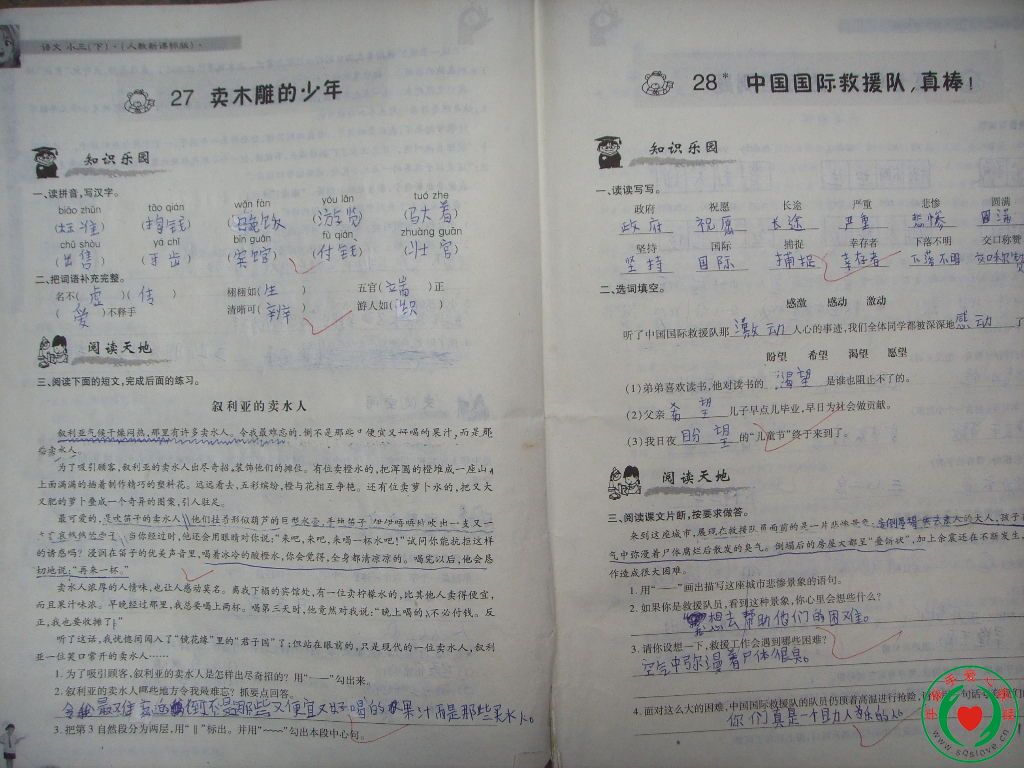 语文 小三(下)·(人教新课标版)·
27 卖木雕的少年
知识乐园
一、读拼音,写汉字。
biāo zhǔn tāo qián wǎn fàn yóu lǎn tuó zhe
(标准) (掏钱) (晚饭) (游览) (驮着)
chū shòu yá chǐ bīn guǎn fù qián zhuàng guān
(出售) (牙齿) (宾馆) (付钱) (壮官)
二、把词语补充完整。
名不(虚)(传) 栩栩如(生) 五官(端)正
(爱)不释手 清晰可(辨) 游人如(织)
阅读天地
三、阅读下面的短文,完成后面的练习。
叙利亚的卖水人
叙利亚气候干燥闷热,那里有许多卖水人。令我最难忘的,倒不是那些又便宜又好喝的果汁,而是那
些卖水人。
为了吸引顾客,叙利亚的卖水人出尽奇招,装饰他们的摊位。有位卖橙水的,把浑圆的橙堆成一座山,
上面满满的插着制作精巧的塑料花。远远看去,五彩缤纷,橙与花相互争艳。还有位卖萝卜水的,把又大
又肥的萝卜叠成一个奇异的图案,引人驻足。
最可爱的,是吹笛子的卖水人。他们挂着形似葫芦的巨型水壶,手执笛子,伊伊唔唔地吹出一支又一
当你经过时,他还会用眼睛对你说:“来吧,来吧,来喝一杯水吧!”试问你能抗拒这样
的诱惑吗?浸润在笛子的优美声音里,喝着冰冷的酸橙水,你会觉得,全身都清凉凉的。喝完以后,他会恳
切地说:“再来一杯。”
卖水人浓厚的人情味,也让人感动莫名。离我下榻的宾馆处,有一位卖柠檬水的,比其他人卖得便宜,
而且果汁味浓。早晚经过那里,我总要喝上两杯。喝第三天时,他竟然对我说:“晚上喝的,不必付钱。反
正,我也要收摊了!”
听了这话,我恍惚间闯入了“镜花缘”里的“君子国”了;但站在眼前的,只是现代的一位卖水人,叙利
亚一位笑口常开的卖水人……
1. 为了吸引顾客,叙利亚的卖水人是怎样出尽奇招的?用“——”勾出来。
2. 叙利亚的卖水人哪些地方令我最难忘?抓要点回答。
倒不是那些又便宜又好喝的果汁而是那些卖水人。
3. 把第3自然段分为两层,用“‖”标出。并用“~~~”勾出本段中心句。
28* 中国国际救援队,真棒!
知识乐园
一、读读写写。
政府 祝愿 长途 严重 悲惨 圆满
政府 祝愿 长途 严重 悲惨 圆满
坚持 国际 捕捉 幸存者 下落不明 交口称赞
坚持 国际 捕捉 幸存者 下落不明 交口称赞
二、选词填空。
感激 感动 激动
听了中国国际救援队那激动人心的事迹,我们全体同学都被深深地感动了
盼望 希望 渴望 愿望
(1)弟弟喜欢读书,他对读书的渴望是谁也阻止不了的。
(2)父亲希望儿子早点儿毕业,早日为社会做贡献。
(3)我日夜盼望的“儿童节”终于来到了。
阅读天地
三、阅读课文片断,按要求做答。
来到这座城市,展现在救援队员面前的是一片悲惨景象:
气中弥漫着尸体腐烂后散发的臭气。倒塌后的房屋大都呈“叠饼状”,加上余震还在不断发生,
作造成很大困难。
1. 用“——”画出描写这座城市悲惨景象的语句。
2. 如果你是救援队员,看到这种景象,你心里会想些什么?
想去帮助他们的困难。
3. 请你设想一下,救援工作会遇到哪些困难?
空气中弥漫着尸体很臭。
4. 面对这么大的困难,中国国际救援队的队员仍顶着高温进行抢险,
你们真是一个助人为乐的人。
www.sqslove.cn